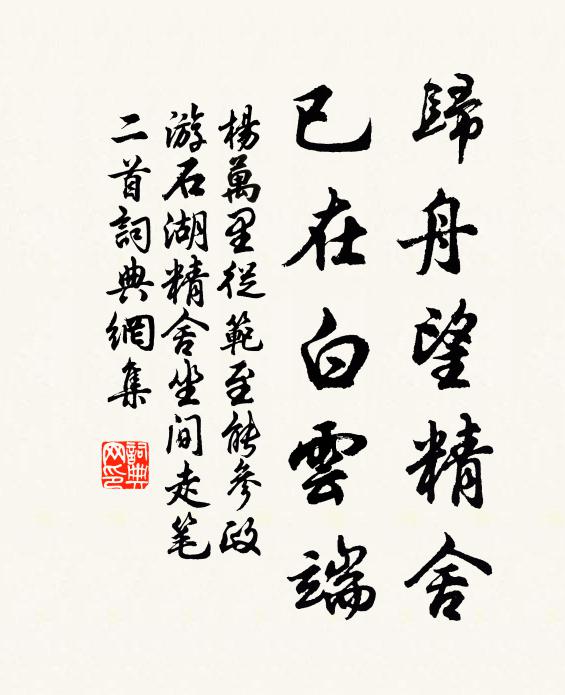 歸舟望精舍
已在白雲端
楊萬里從範至能參政
游石湖精舍坐间走笔
二首詞典網集
詞典
网印